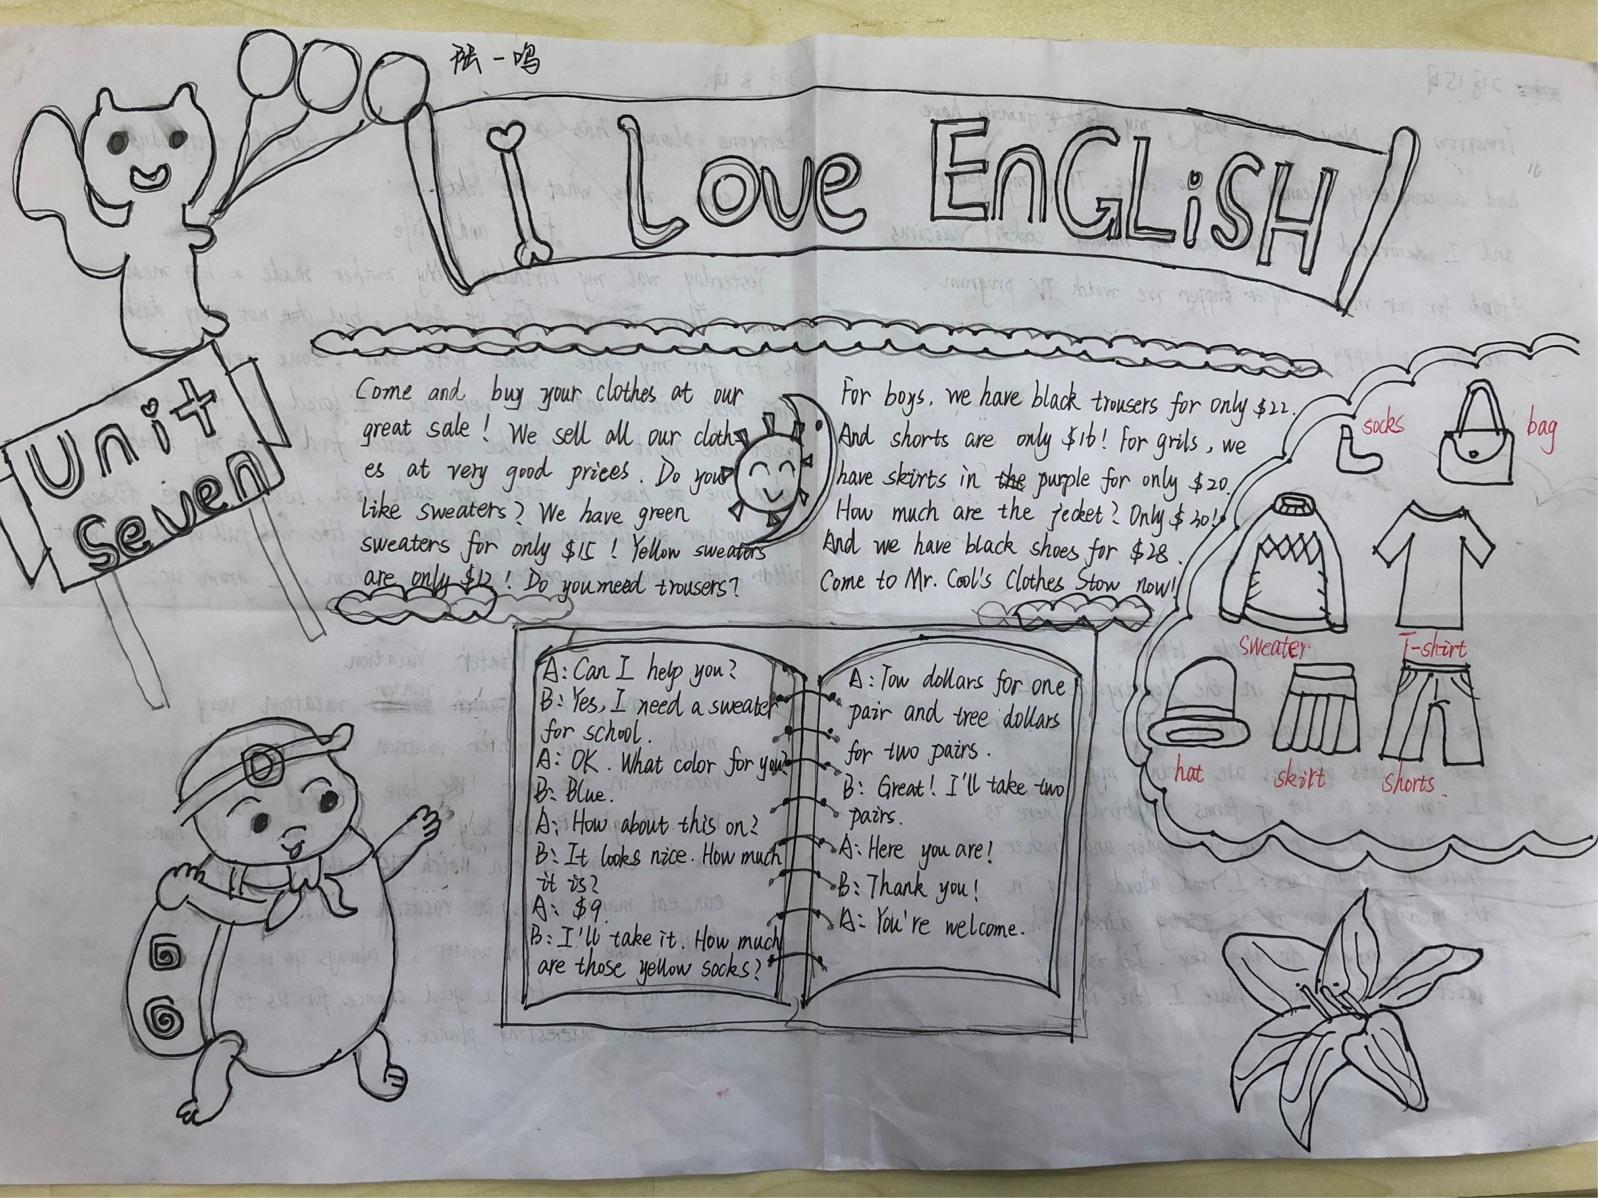 陆一鸣
I LOVE ENGLiSH
Unit
Seven
Come and buy your clothes at our
great sale! We sell all our cloth
es at very good prices. Do you
like sweaters? We have green
sweaters for only $15! Yellow sweaters
are only $12! Do you meed trousers?
For boys. We have black trousers for only $22.
And shorts are only $16! For grils, we
have skirts in the purple for only $20.
How much are the jecket? Only $30!
And we have black shoes for $28.
Come to Mr. Cool's Clothes Stow now!
socks
bag
sweater
T-shirt
hat
skirt
shorts.
A: Can I help you?
B: Yes, I need a sweater
for school.
A: OK. What color for you?
B: Blue.
A: How about this on?
B: It looks nice. How much
it is?
A: $9.
B: I'll take it. How much
are those yellow socks?
A: Tow dollars for one
pair and tree dollars
for two pairs.
B: Great! I'll take two
pairs.
A: Here you are!
B: Thank you!
A: You're welcome.